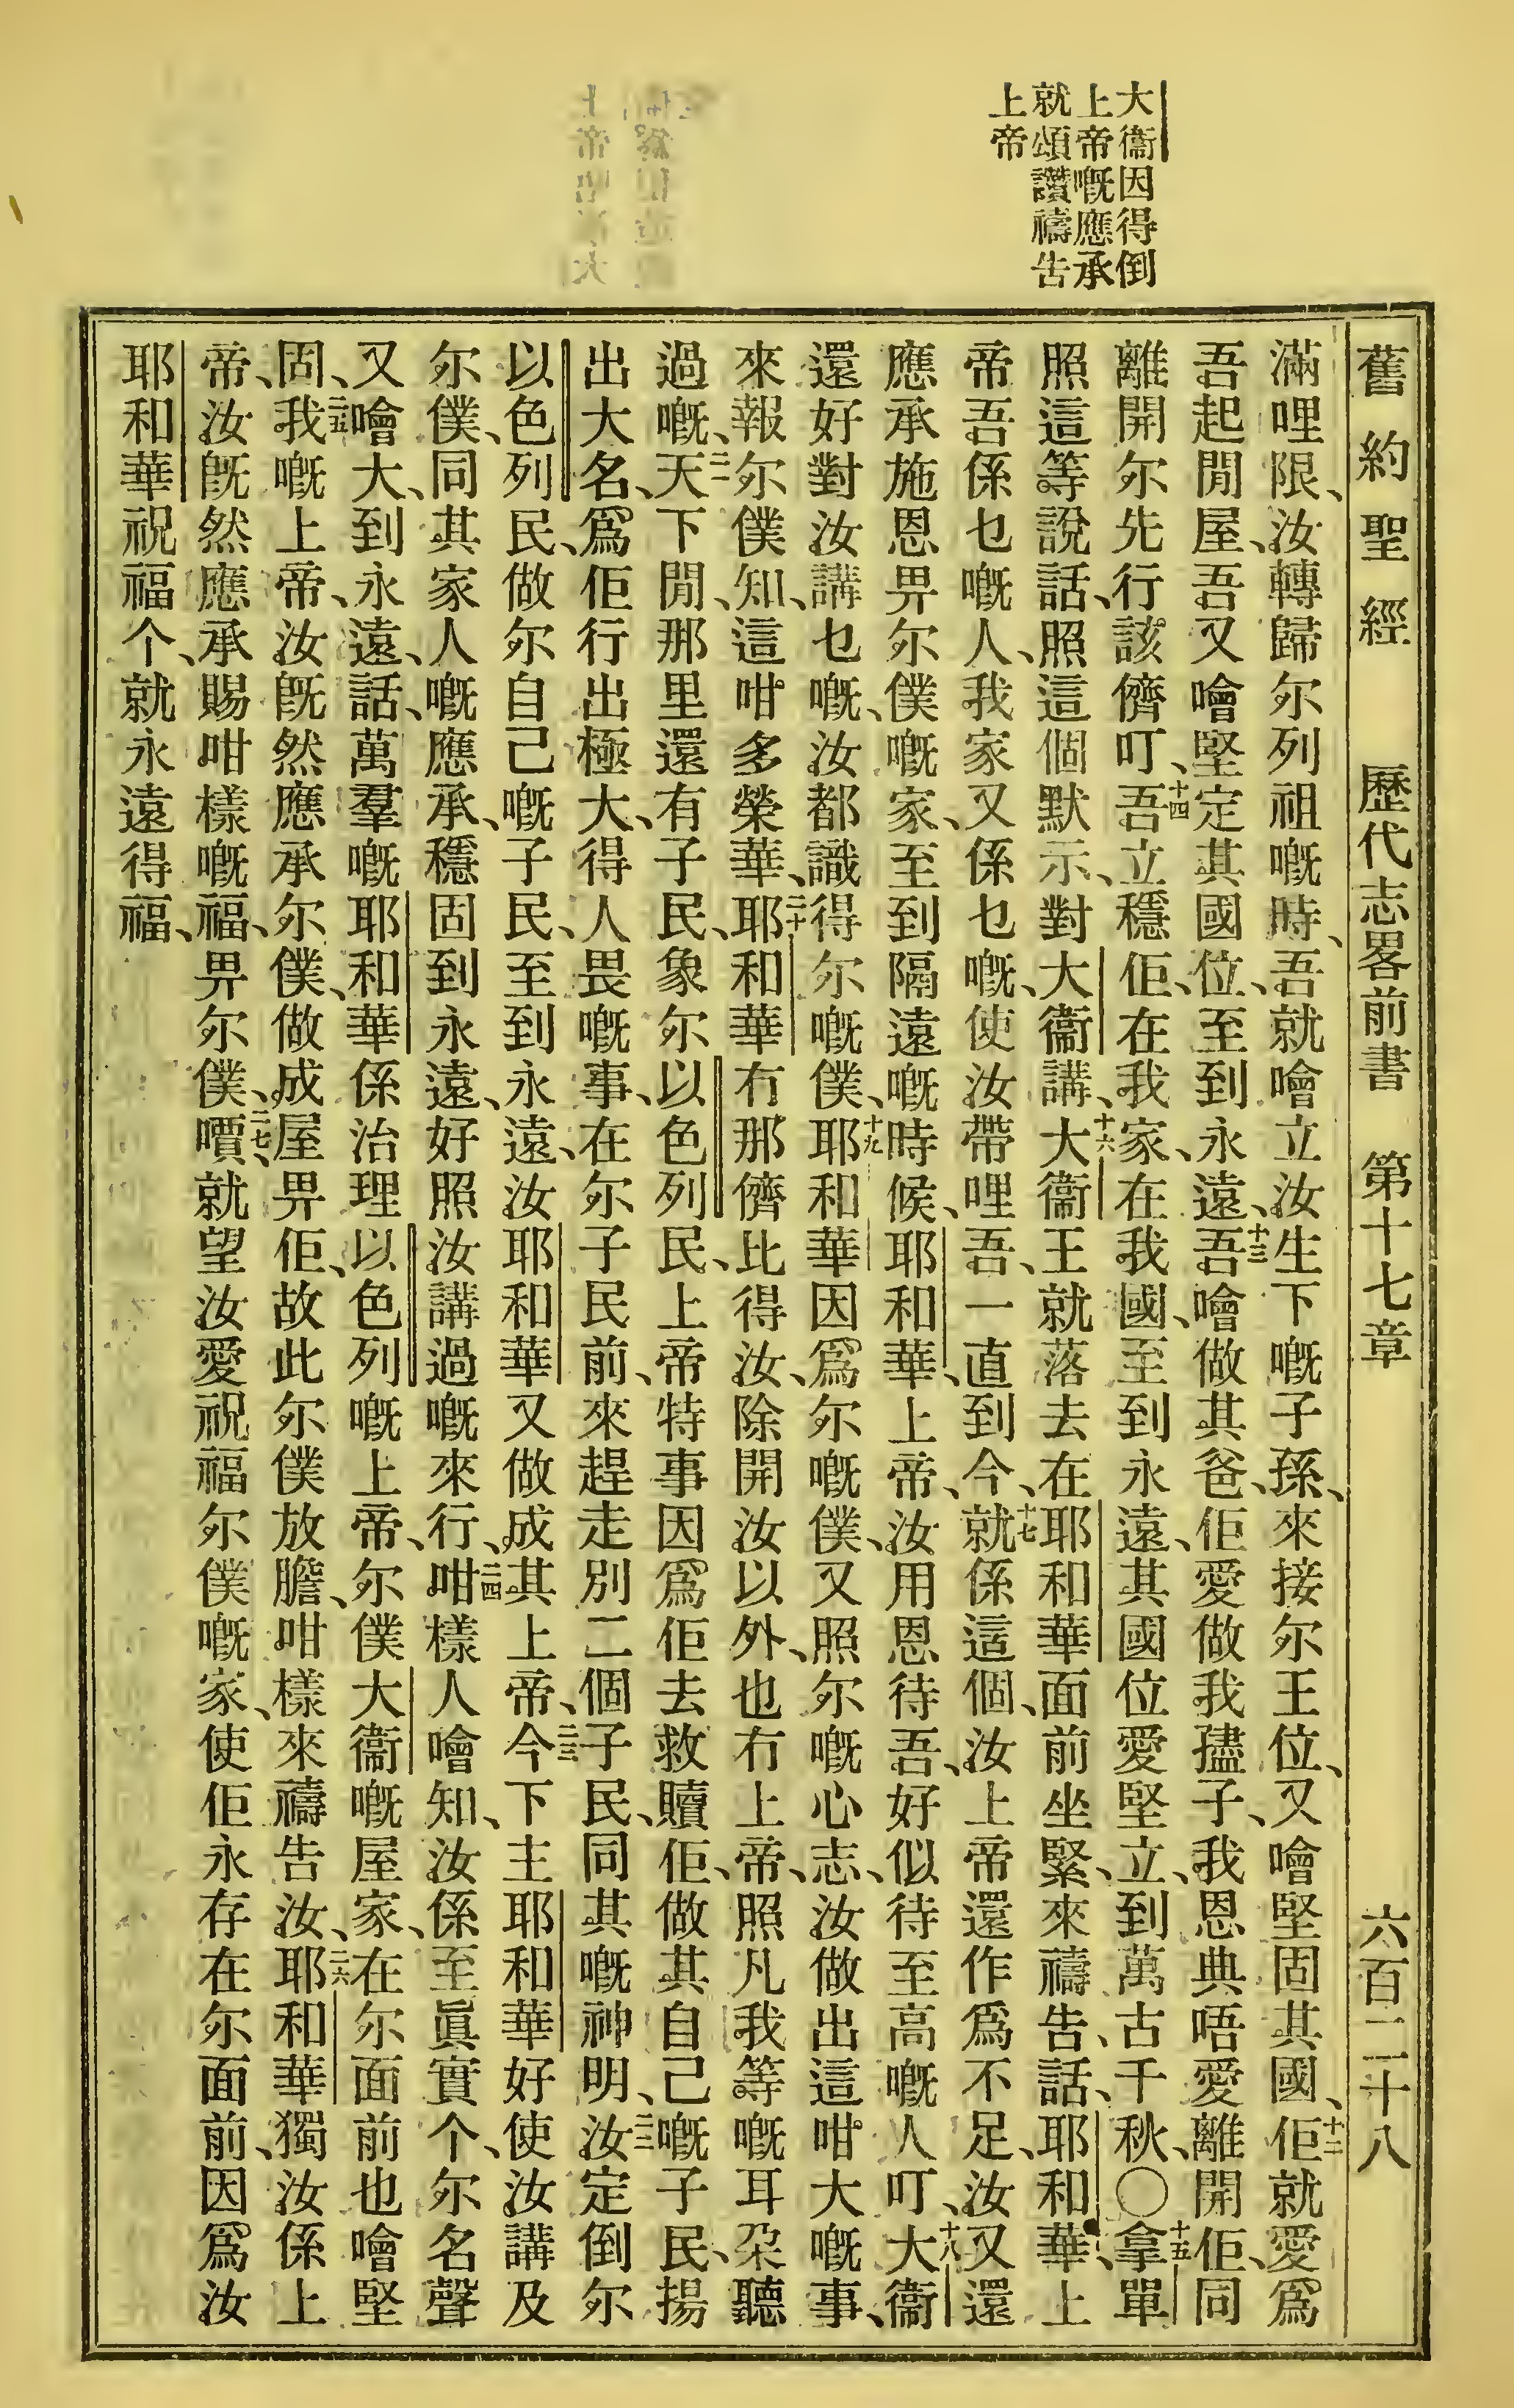 大衞因得倒
上帝嘅應承
就頌讚禱告
上帝
舊約聖經 歷代志畧前書 第十七章 六百二十八
滿哩限、汝轉歸尔列祖嘅時、吾就噲立汝生下嘅子孫、來接尔王位、又噲堅固其國、十二佢就愛爲
吾起閒屋、吾又噲堅定其國位、至到永遠、十三吾噲做其爸、佢愛做我㜽子、我恩典唔愛離開佢、同
離開尔先行該儕叮、十四吾立穩佢、在我家、在我國、至到永遠、其國位愛堅立、到萬古千秋、〇十五拿單
照這等說話、照這個默示、對大衞講、十六大衞王就落去在耶和華面前坐緊、來禱告、話、耶和華、上
帝吾係乜嘅人、我家又係乜嘅、使汝帶哩吾、一直到今、十七就係這個、汝上帝還作爲不足、汝又還
應承施恩畀尔僕嘅家、至到隔遠嘅時候、耶和華、上帝、汝用恩待吾、好似待至高嘅人叮、十八大衞
還好對汝講乜嘅、汝都識得尔嘅僕、十九耶和華因爲尔嘅僕、又照尔嘅心志、汝做出這咁大嘅事、
來報尔僕知、這咁多榮華、二十耶和華冇那儕比得汝、除開汝以外、也冇上帝、照凡我等嘅耳朶聽
過嘅、二一天下閒、那里還有子民、象尔以色列民、上帝特事因爲佢去救贖佢、做其自己嘅子民、揚
出大名、爲佢行出極大、得人畏嘅事、在尔子民前、來趕走別二個子民、同其嘅神明、二二汝定倒尔
以色列民、做尔自己嘅子民、至到永遠、汝耶和華又做成其上帝、二三今下主耶和華好使汝講及
尔僕、同其家人嘅應承、穩固到永遠、好照汝講過嘅來行、二四咁樣人噲知、汝係至眞實个、尔名聲
又噲大、到永遠、話、萬羣嘅耶和華係治理以色列嘅上帝、尔僕大衞嘅屋家、在尔面前也噲堅
固、二五我嘅上帝、汝旣然應承尔僕、做成屋畀佢、故此尔僕放膽、咁樣來禱告汝、二六耶和華獨汝係上
帝、汝旣然應承賜咁樣嘅福、畀尔僕、二七嘪、就望汝愛祝福尔僕嘅家、使佢永存在尔面前、因爲汝
耶和華祝福个、就永遠得福、